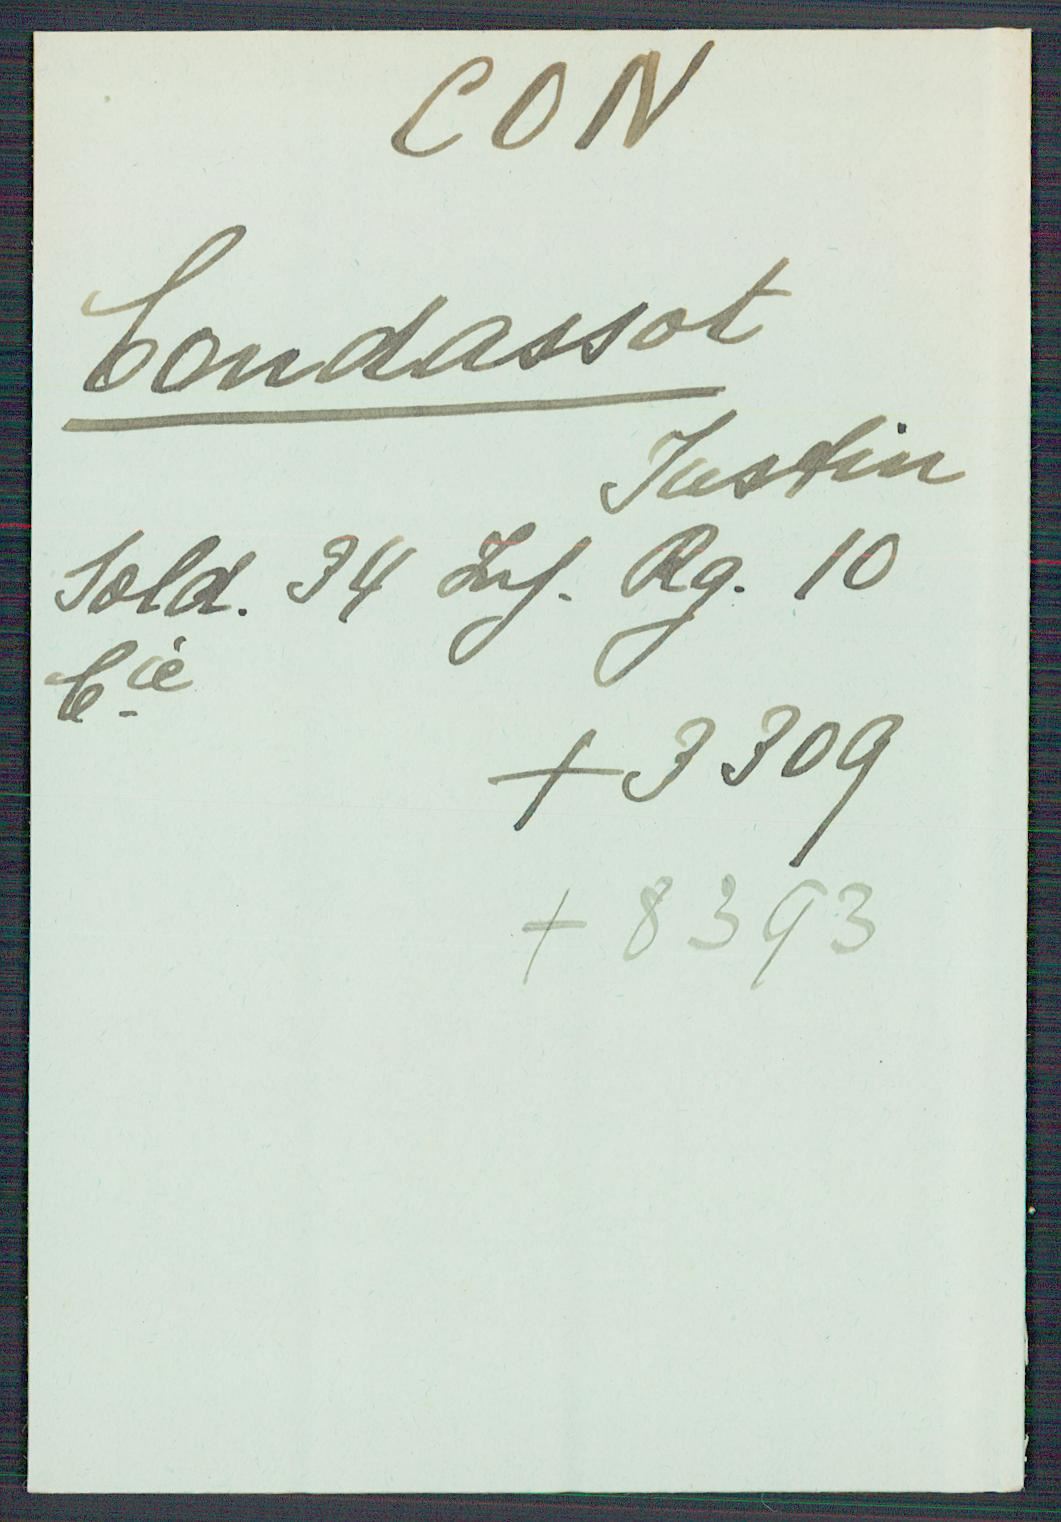 CON
Condassot
Justin
Sold. 34 Inf. Rg. 10
Cie
+ 3309
+ 8393